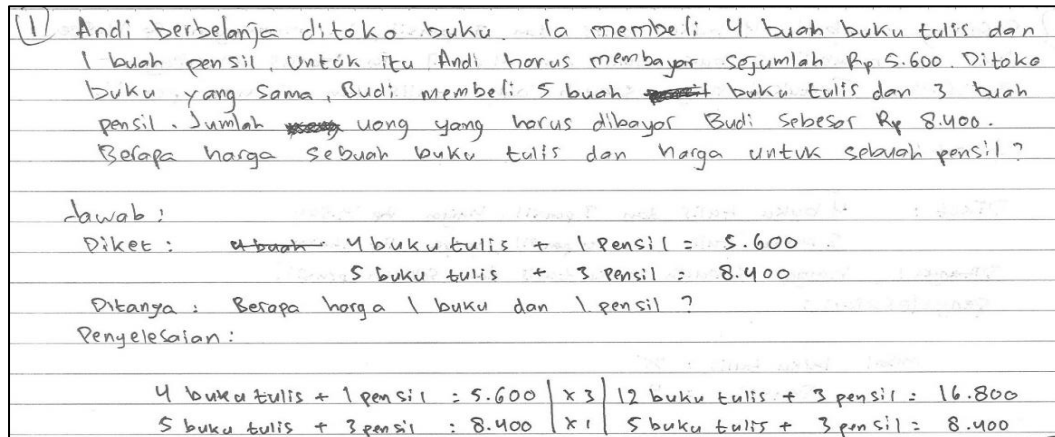 (1) Andi berbelanja ditoko buku. Ia membeli 4 buah buku tulis dan
1 buah pensil. Untuk itu Andi harus membayar sejumlah Rp 5.600. Ditoko
buku yang sama, Budi membeli 5 buah buku tulis dan 3 buah
pensil. Jumlah uang yang harus dibayar Budi sebesar Rp 8.400.
Berapa harga sebuah buku tulis dan harga untuk sebuah pensil?
Jawab:
Diket : 4 buku tulis + 1 pensil = 5.600
5 buku tulis + 3 pensil = 8.400
Ditanya : Berapa harga 1 buku dan 1 pensil ?
Penyelesaian :
4 buku tulis + 1 pensil = 5.600 | x 3 | 12 buku tulis + 3 pensil = 16.800
5 buku tulis + 3 pensil = 8.400 | x 1 | 5 buku tulis + 3 pensil = 8.400